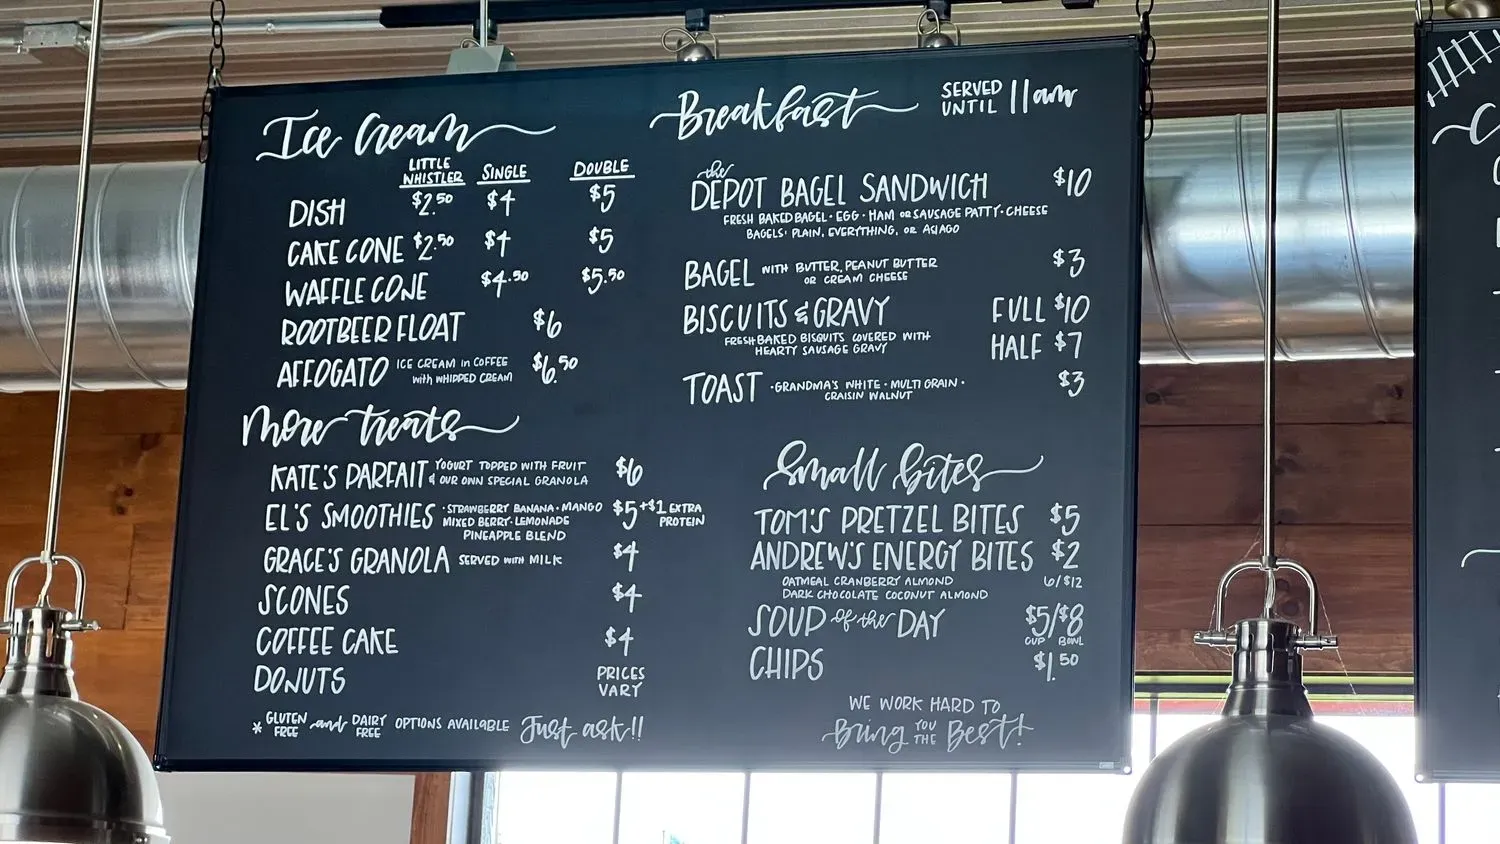 Ice Cream
LITTLE WHISTLER SINGLE DOUBLE
DISH $2.50 $4 $5
CAKE CONE $2.50 $4 $5
WAFFLE CONE $4.50 $5.50
ROOTBEER FLOAT $6
AFFOGATO ICE CREAM in COFFEE with WHIPPED CREAM $6.50
More treats
KATE'S PARFAIT YOGURT TOPPED WITH FRUIT $6
& OUR OWN SPECIAL GRANOLA
EL'S SMOOTHIES · STRAWBERRY BANANA · MANGO $5 +$1 EXTRA PROTEIN
MIXED BERRY · LEMONADE
PINEAPPLE BLEND
GRACE'S GRANOLA SERVED WITH MILK $4
SCONES $4
COFFEE CAKE $4
DONUTS PRICES VARY
* GLUTEN FREE and DAIRY FREE OPTIONS AVAILABLE Just ask!!
Breakfast SERVED UNTIL 11am
the
DEPOT BAGEL SANDWICH $10
FRESH BAKED BAGEL · EGG · HAM OR SAUSAGE PATTY · CHEESE
BAGELS: PLAIN, EVERYTHING, OR ASIAGO
BAGEL WITH BUTTER, PEANUT BUTTER $3
OR CREAM CHEESE
BISCUITS & GRAVY FULL $10
FRESH BAKED BISQUITS COVERED WITH
HEARTY SAUSAGE GRAVY HALF $7
TOAST · GRANDMA'S WHITE · MULTI GRAIN · $3
CRAISIN WALNUT
Small bites
TOM'S PRETZEL BITES $5
ANDREW'S ENERGY BITES $2
OATMEAL CRANBERRY ALMOND 6/$12
DARK CHOCOLATE COCONUT ALMOND
SOUP of the DAY $5/$8
CUP BOWL
CHIPS $1.50
WE WORK HARD TO
Bring YOU THE Best!